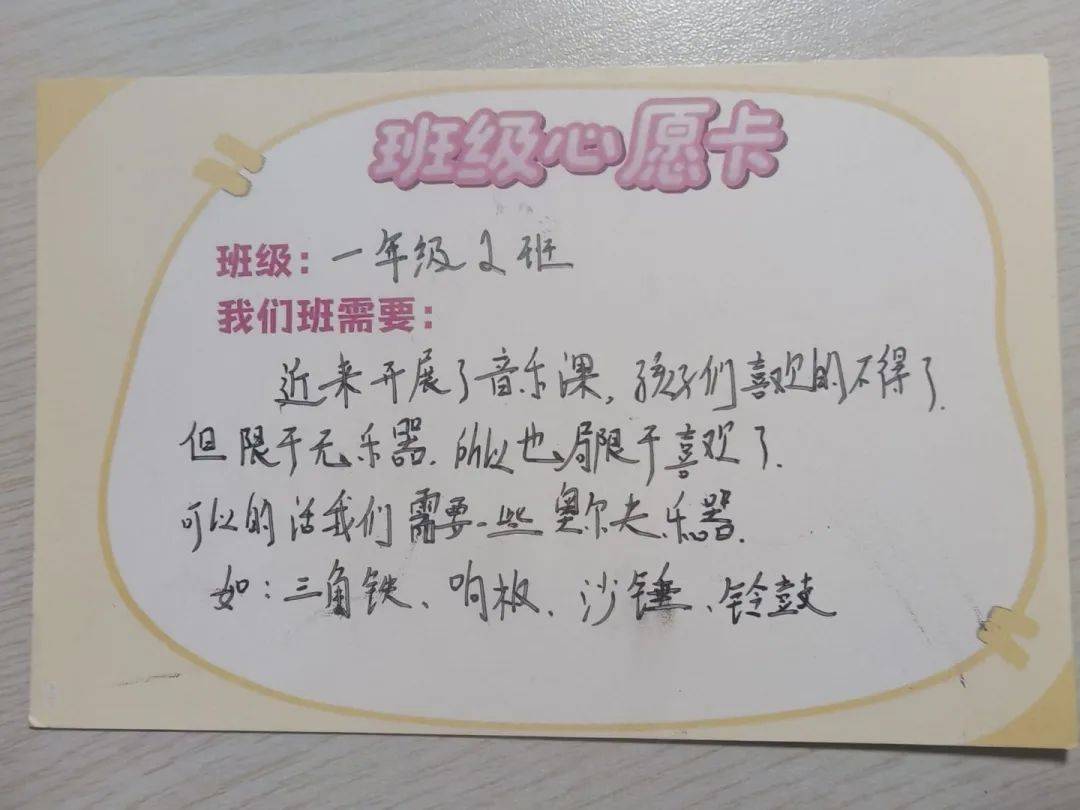 班级心愿卡
班级：一年级2班
我们班需要：
近来开展了音乐课，孩子们喜欢的不得了.
但限于无乐器.所以也局限于喜欢了.
可以的活我们需要一些奥尔夫乐器.
如：三角铁、响板、沙锤、铃鼓